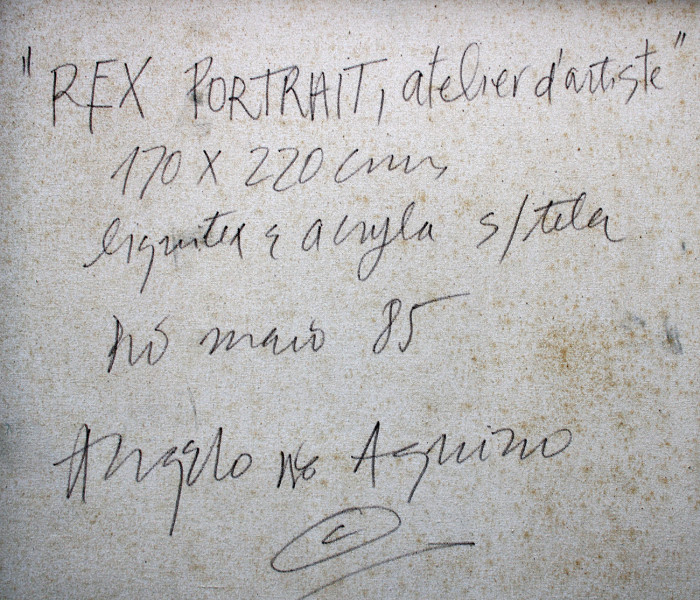 "REX PORTRAIT, atelier d'artiste"
170 X 220 cms,
liquitex e acryla s/tela
Rio maio 85
Angelo de Aquino
C